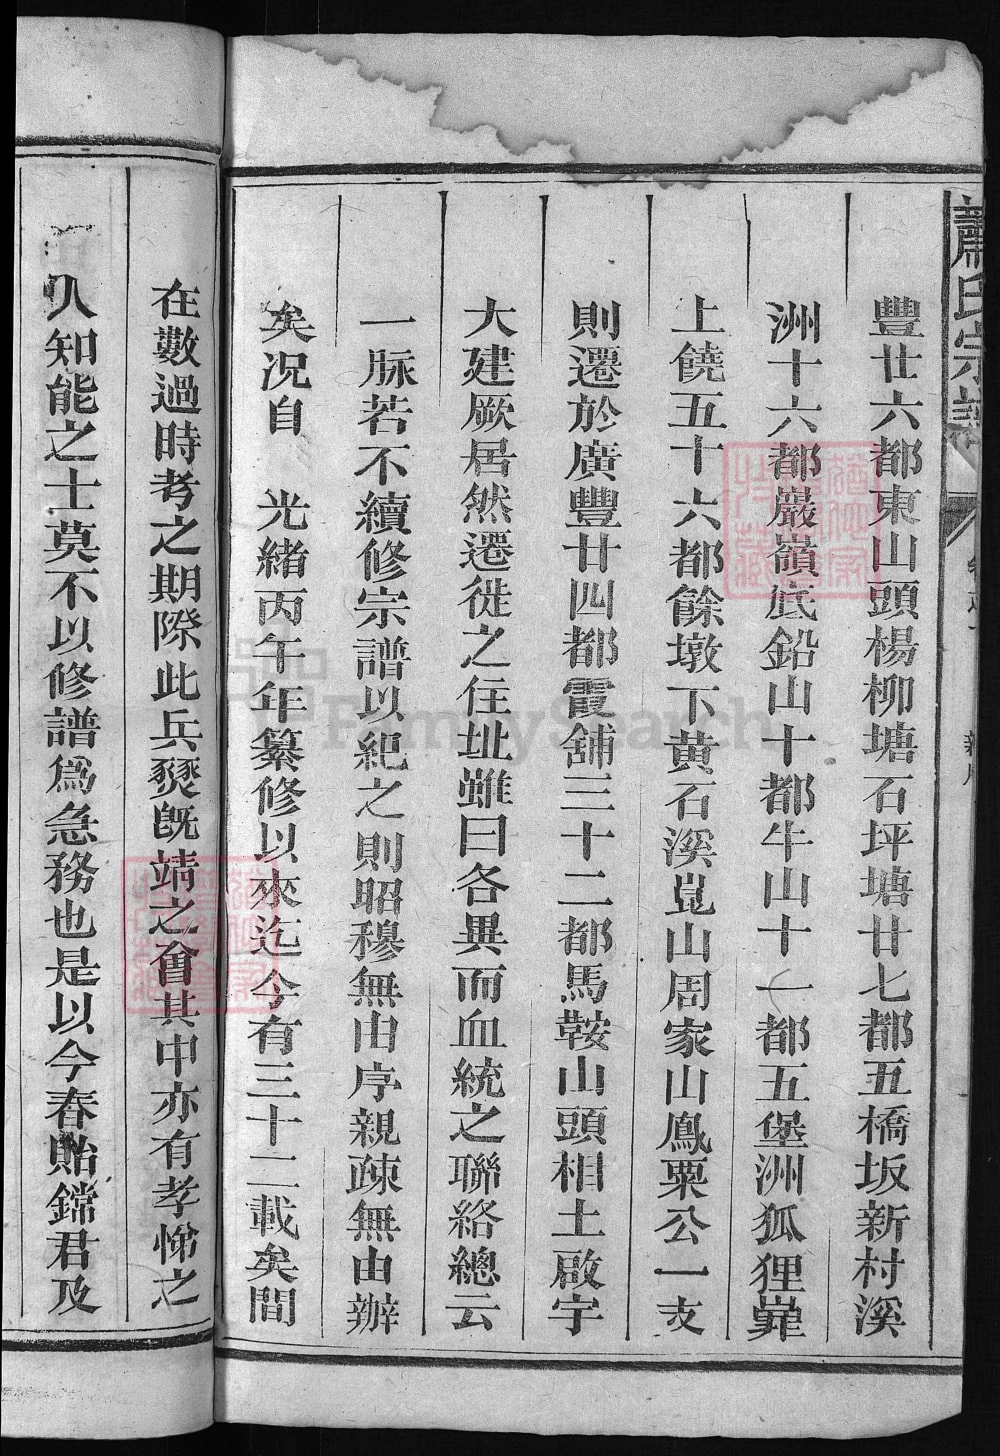 蕭氏宗譜
豐廿六都東山頭楊柳塘石坪塘廿七都五橋坂新村溪
洲十六都嚴嶺底鉛山十都牛山十一都五堡洲狐狸
上饒五十六都餘墩下黄石溪崑山周家山鳳粟公一支
則遷於廣豐廿四都霞舖三十二都馬鞍山頭相土啟宇
大建厥居然遷徙之住址雖曰各異而血統之聯絡總云
一脉若不續修宗譜以紀之則昭穆無由序親疎無由辦
矣况自 光緒丙午年纂修以來迄今有三十二載矣間
在數過時考之期際此兵燹既靖之會其中亦有孝悌之
人知能之士莫不以修譜爲急務也是以今春貽鏛君及
FamilySearch